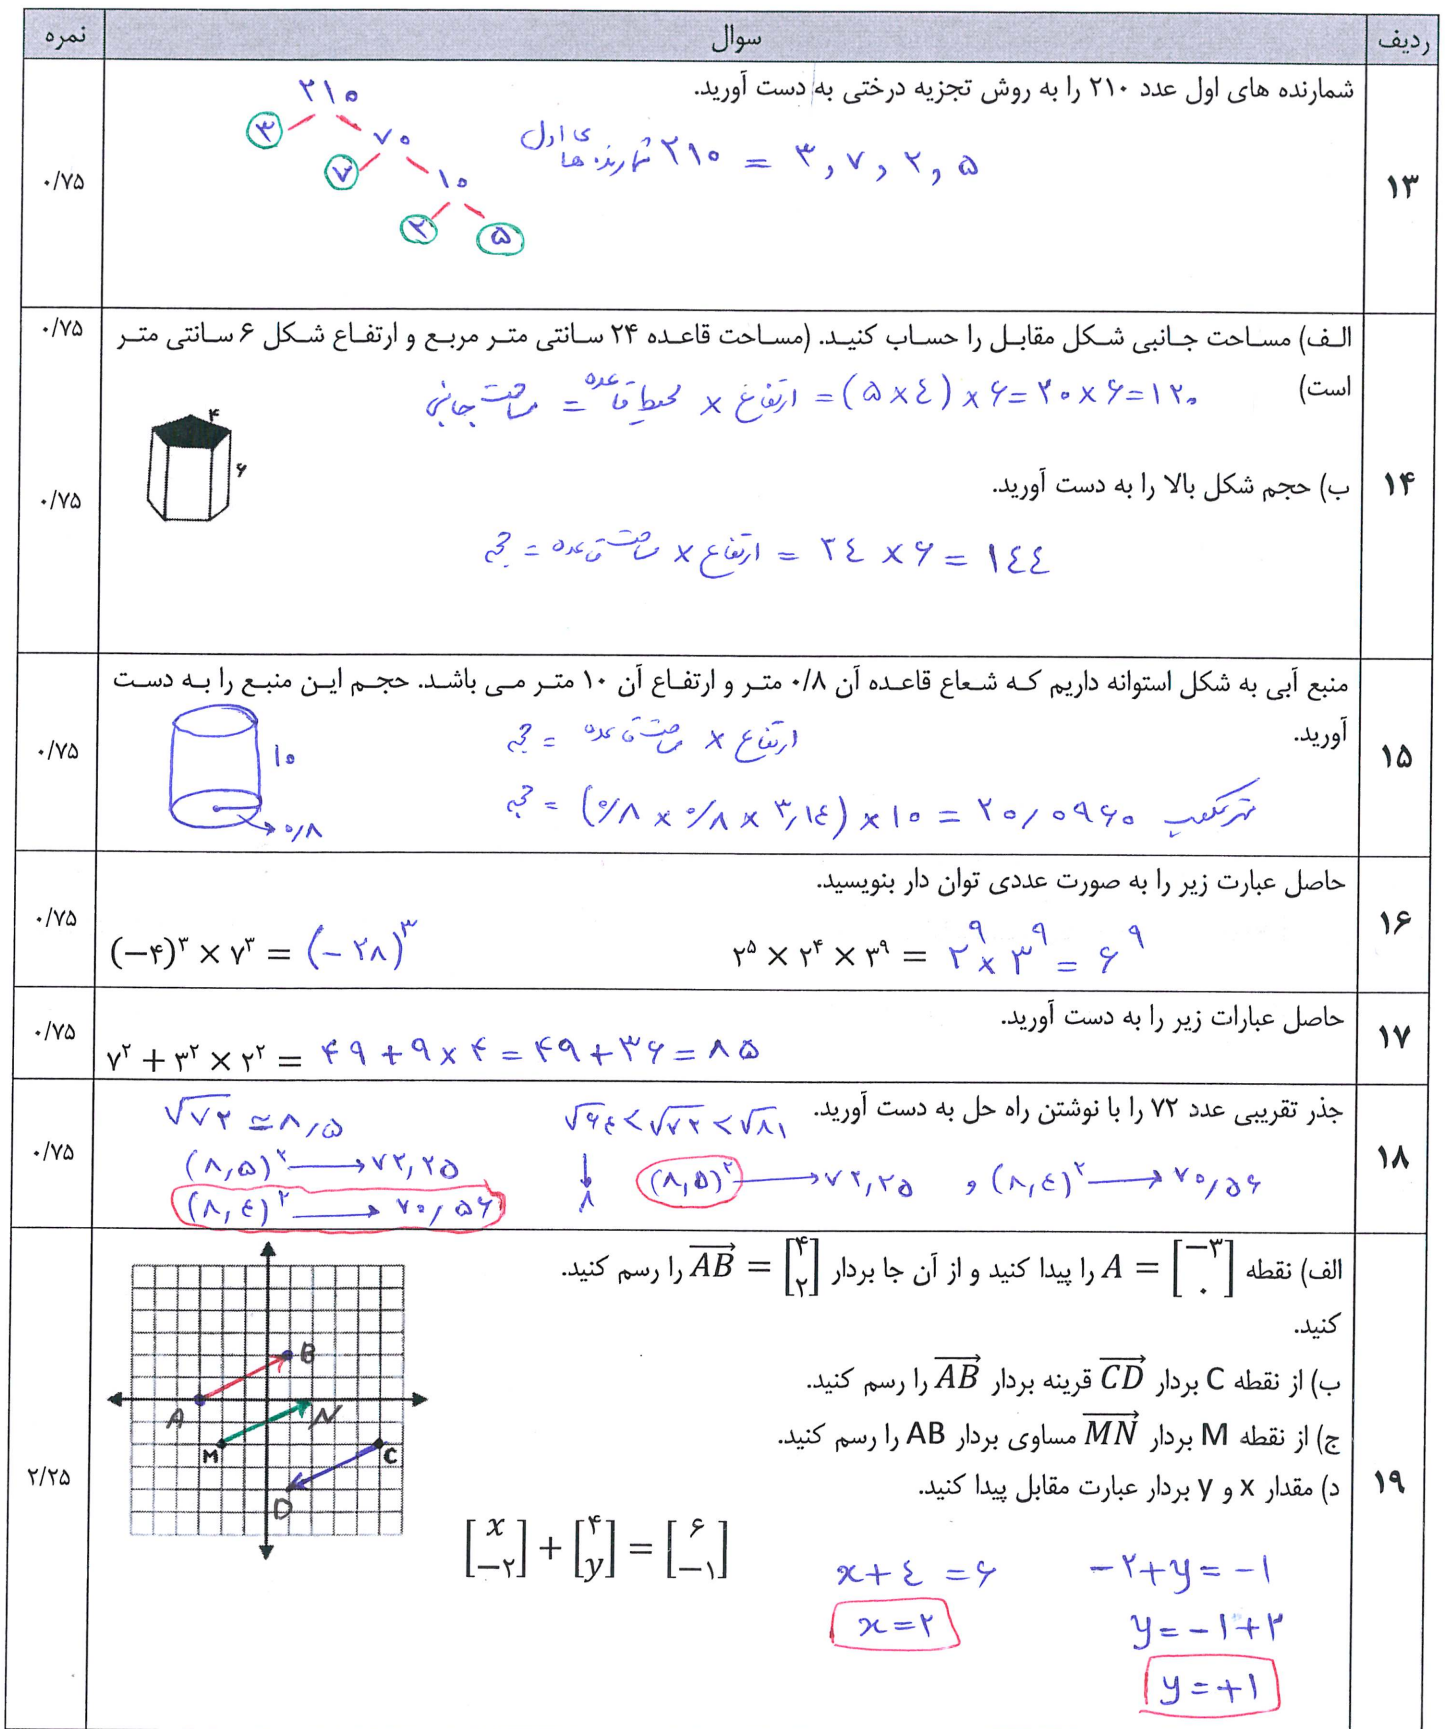 ردیف سوال نمره
۱۳ شمارنده های اول عدد ۲۱۰ را به روش تجزیه درختی به دست آورید. ۰/۷۵
۲۱۰
۳ ۷۰
۷ ۱۰
۲ ۵
شمارنده های اول ۲۱۰ = ۳ , ۷ , ۲ , ۵
۱۴ الف) مساحت جانبی شکل مقابل را حساب کنید. (مساحت قاعده ۲۴ سانتی متر مربع و ارتفاع شکل ۶ سانتی متر ۰/۷۵
است)
مساحت جانبی = محیط قاعده × ارتفاع = (۵×٤) × ۶ = ۲۰ × ۶ = ۱۲۰
۴
۶
ب) حجم شکل بالا را به دست آورید. ۰/۷۵
حجم = مساحت قاعده × ارتفاع = ۲٤ × ۶ = ۱٤٤
۱۵ منبع آبی به شکل استوانه داریم که شعاع قاعده آن ۰/۸ متر و ارتفاع آن ۱۰ متر می باشد. حجم این منبع را به دست ۰/۷۵
آورید.
حجم = مساحت قاعده × ارتفاع
۱۰
۰/۸
حجم = (۰/۸ × ۰/۸ × ۳/۱٤) × ۱۰ = ۲۰/۰۹۶۰ متر مکعب
۱۶ حاصل عبارت زیر را به صورت عددی توان دار بنویسید. ۰/۷۵
(−۴)^۳ × ۷^۳ = (−۲۸)^۳
۲^۵ × ۲^۴ × ۳^۹ = ۲^۹ × ۳^۹ = ۶^۹
۱۷ حاصل عبارات زیر را به دست آورید. ۰/۷۵
۷^۲ + ۳^۲ × ۲^۲ = ۴۹ + ۹ × ۴ = ۴۹ + ۳۶ = ۸۵
۱۸ جذر تقریبی عدد ۷۲ را با نوشتن راه حل به دست آورید. ۰/۷۵
√۶٤ < √۷۲ < √۸۱
√۷۲ ≃ ۸/۵
↓
۸
(۸/۵)^۲ → ۷۲/۲۵ , (۸/٤)^۲ → ۷۰/۵۶
(۸/۵)^۲ → ۷۲/۲۵
(۸/٤)^۲ → ۷۰/۵۶
۱۹ الف) نقطه A = [−۳ ۰] را پیدا کنید و از آن جا بردار AB = [۴ ۲] را رسم کنید. ۲/۲۵
کنید.
ب) از نقطه C بردار CD قرینه بردار AB را رسم کنید.
ج) از نقطه M بردار MN مساوی بردار AB را رسم کنید.
د) مقدار x و y بردار عبارت مقابل پیدا کنید.
B
A
N
M
C
D
[x −۲] + [۴ y] = [۶ −۱]
x + ٤ = ۶
x = ۲
−۲ + y = −۱
y = −۱ + ۲
y = +۱